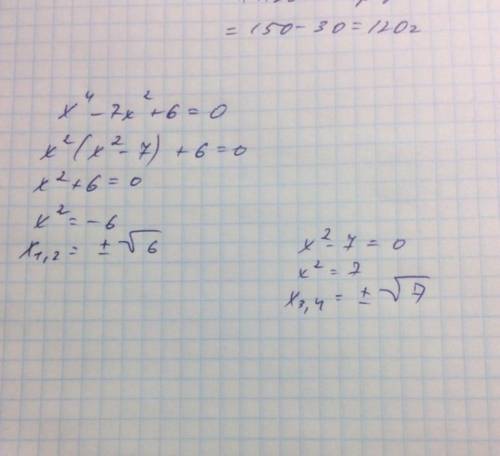 = 150 - 30 = 120г
x⁴ - 7x² + 6 = 0
x² (x² - 7) + 6 = 0
x² + 6 = 0
x² = -6
x₁,₂ = ± √6
x² - 7 = 0
x² = 7
x₃,₄ = ± √7